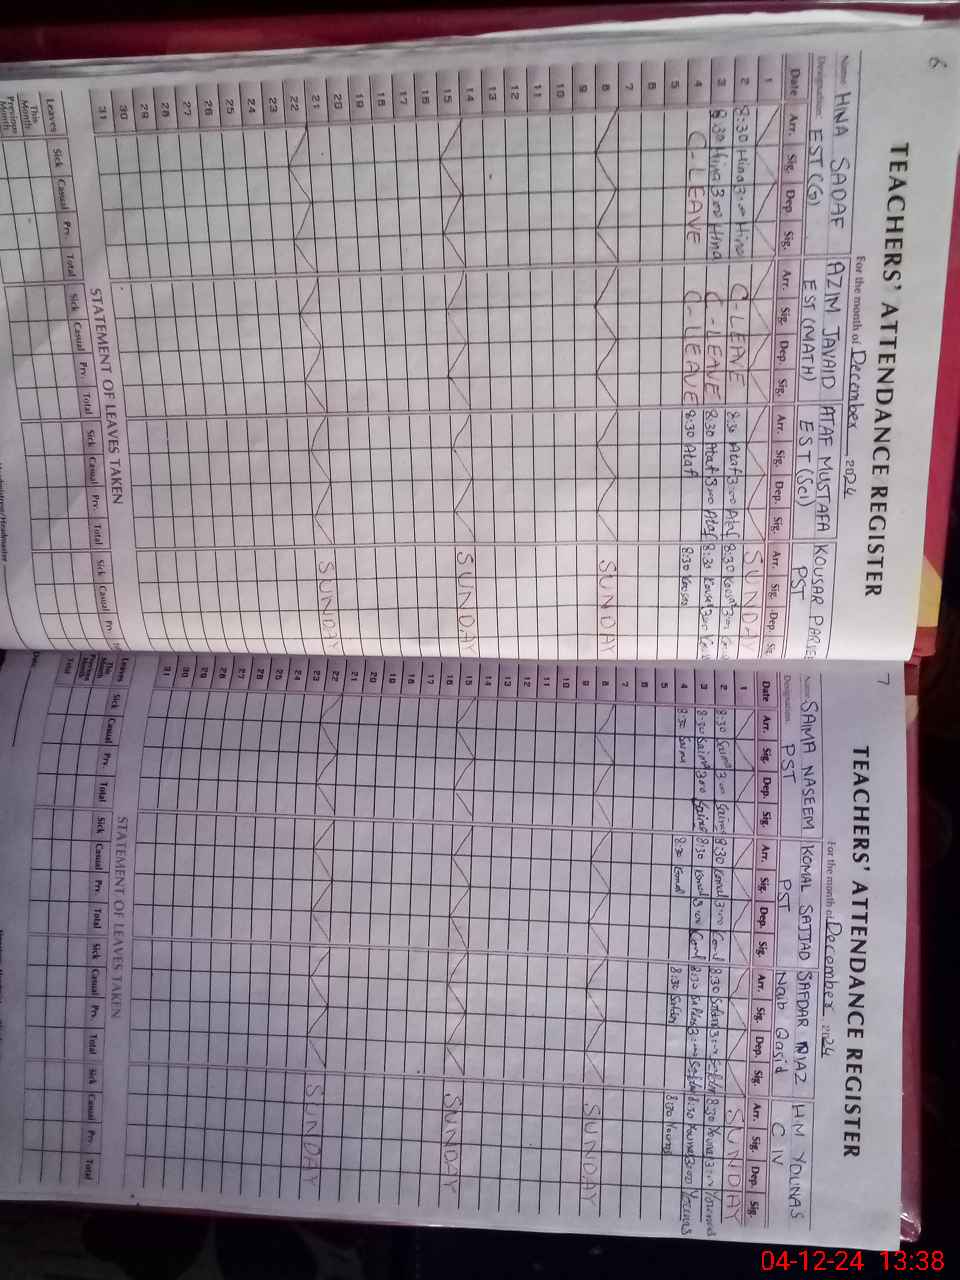 6
TEACHERS' ATTENDANCE REGISTER
For the month of December 2024
Name: HINA SADAF AZIM JAVAID ATAF MUSTAFA KOUSAR
Designation: EST(CG) EST(MATH) EST(Sci) PST
Date Arr. Sig. Dep. Sig. Arr. Sig. Dep. Sig. Arr. Sig. Dep. Sig. Arr. Sig. Dep.
1 SUNDAY
2 8:30 Hina 3:00 Hina C-LEAVE 8:30 Ataf 3:00 Ataf 8:30
3 8:30 Hina 3:00 Hina C-LEAVE 8:30 Ataf 3:00 Ataf 8:30
4 C-LEAVE C-LEAVE 8:30 Ataf 8:30
5
6
7
8 SUNDAY
9
10
11
12
13
14
15 SUNDAY
16
17
18
19
20
21
22 SUNDAY
23
24
25
26
27
28
29
30
31
STATEMENT OF LEAVES TAKEN
Leaves Sick Casual Prv. Total Sick Casual Prv. Total Sick Casual Prv. Total Sick Casual
This Month
Previous Month
7
TEACHERS' ATTENDANCE REGISTER
For the month of December 2024
Name: SAIMA NASEEM KOMAL SAJJAD SAFDAR NIAZ HM YOUNAS
Designation: PST PST Naib Qasid C IV
Date Arr. Sig. Dep. Sig. Arr. Sig. Dep. Sig. Arr. Sig. Dep. Sig. Arr. Sig. Dep. Sig.
1 SUNDAY
2 8:30 Saima 3:00 Saima 8:30 Komal 3:00 8:30 Safdar 3:00 Safdar 8:30 Younas 3:00 Younas
3 8:30 Saima 3:00 Saima 8:30 Komal 3:00 8:30 Safdar 3:00 Safdar 8:30 Younas 3:00 Younas
4 8:30 Saima 8:30 Komal 8:30 Safdar 8:30 Younas
5
6
7
8 SUNDAY
9
10
11
12
13
14
15 SUNDAY
16
17
18
19
20
21
22 SUNDAY
23
24
25
26
27
28
29
30
31
STATEMENT OF LEAVES TAKEN
Leaves Sick Casual Prv. Total Sick Casual Prv. Total Sick Casual Prv. Total Sick Casual Prv. Total
This Month
Previous Month
Total
Date:
04-12-24 13:38